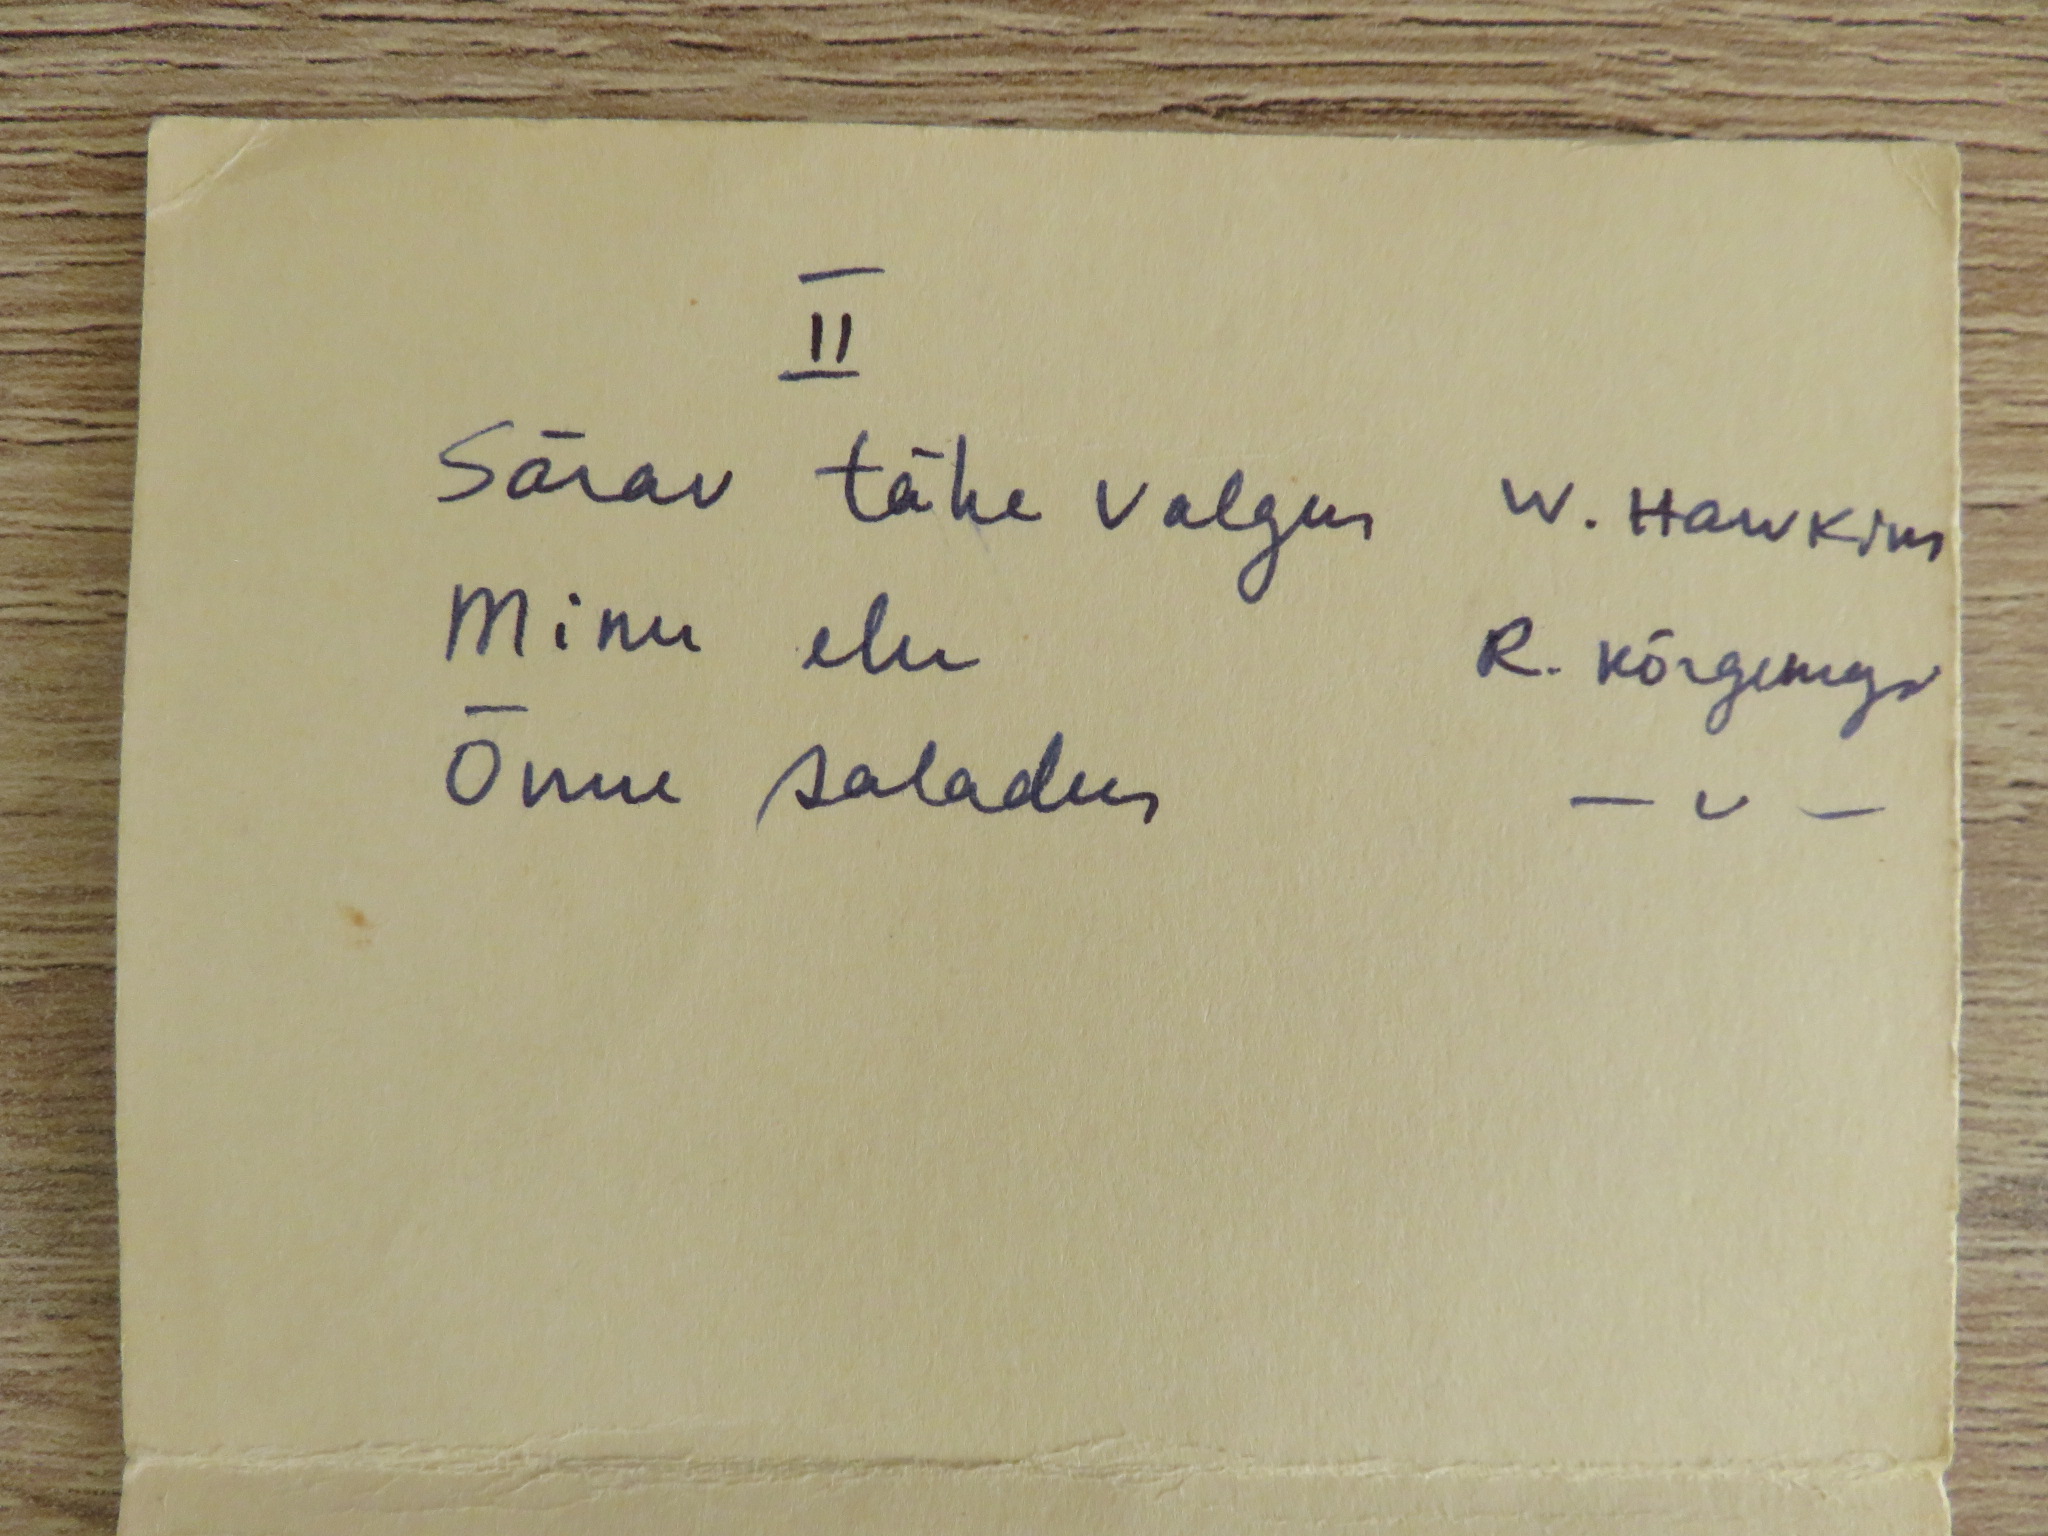 II
Särav tähe valgus W. Hawkins
Minu elu R. Kõrgemägi
Õnne saladus — v —